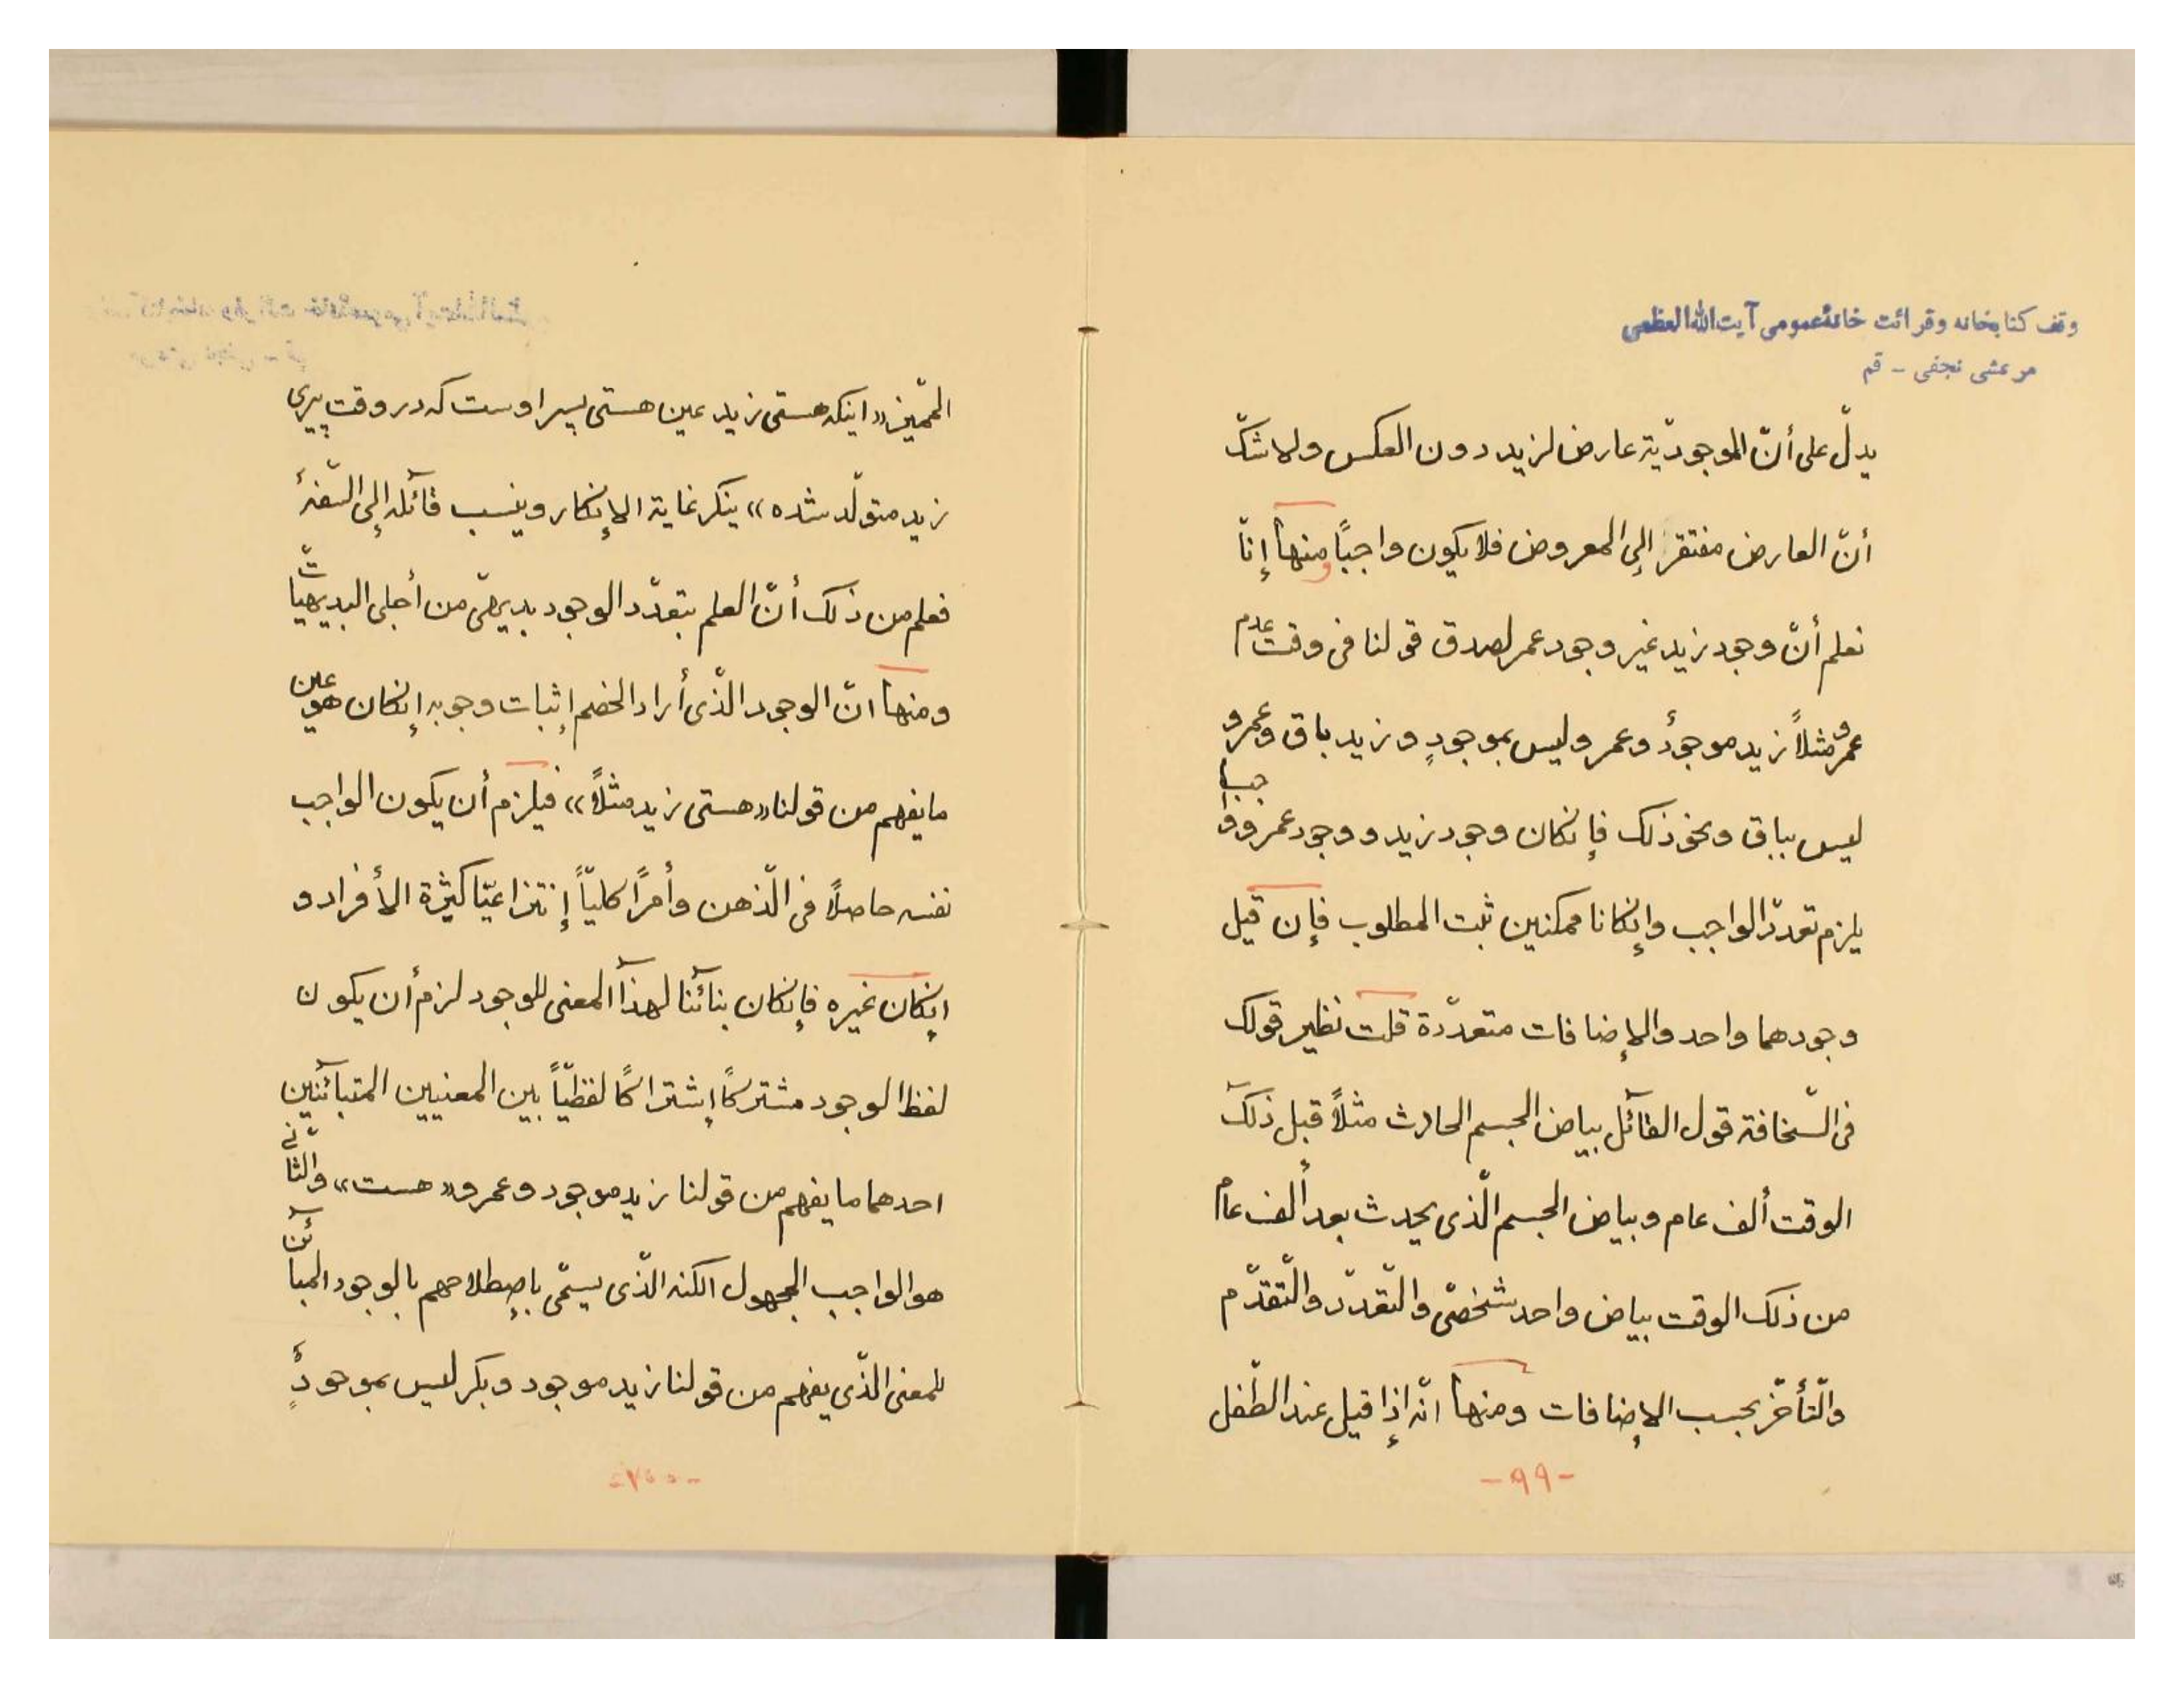 وقف كتابخانه وقرائت خانهٔ عمومى آيت الله العظمى
مرعشى نجفى - قم
يدلّ على أنّ الموجوديّة عارض لزيد دون العكس ولا شكّ
أنّ العارض مفتقر إلى المعروض فلا يكون واجبًا و منها إنّا
نعلم أنّ وجود زيد غير وجود عمر لصدق قولنا فى وقت عدم
عمرو مثلاً زيد موجودٌ وعمرو ليس بموجودٍ و زيد باق وعمرو
ليس بباق ونحو ذلك فإنكان وجود زيد و وجود عمرو واجبا
يلزم تعددّ الواجب وإنكانا ممكنين ثبت المطلوب فإن قيل
وجودهما واحد والإضافات متعدّدة قلت نظير قولك
فى السّخافة قول القآئل بياض الجسم الحادث مثلاً قبل ذلك
الوقت ألف عام وبياض الجسم الّذى يحدث بعد ألف عام
من ذلك الوقت بياض واحد شخصّى والتّعدّد والتّقدّم
والتّأخّر بحسب الإضافات ومنها انّه إذا قيل عند الطّفل
-٩٩-
المميّز «اينكه هستى زيد عين هستى پسر اوست كه در وقت پيرى
زيد متولّد شده» ينكر غاية الإنكار وينسب قآئله إلى السّفه
فعلم من ذلك أنّ العلم بتعدّد الوجود بديهىّ من أجلى البديهيّات
ومنها انّ الوجود الّذى أراد الخصم إثبات وجوبه إنكان هو عين
ما يفهم من قولنا «هستى زيد مثلاً» فيلزم أن يكون الواجب
نفسه حاصلاً فى الّذهن وأمرًا كليّاً إنتزاعيّا كثيرة الأفراد و
إنكان غيره فإنكان بنائنا لهذا المعنى للوجود لزم أن يكون
لفظ الوجود مشتركًا إشتراكًا لفظيّاً بين المعنيين المتبآئنين
احدهما ما يفهم من قولنا زيد موجود وعمرو «هست» والثّانى
هو الواجب المجهول الكنه الّذى يسمّى بإصطلاحهم بالوجود المبآئن
للمعنى الّذى يفهم من قولنا زيد موجود وبكر ليس بموجودٍ